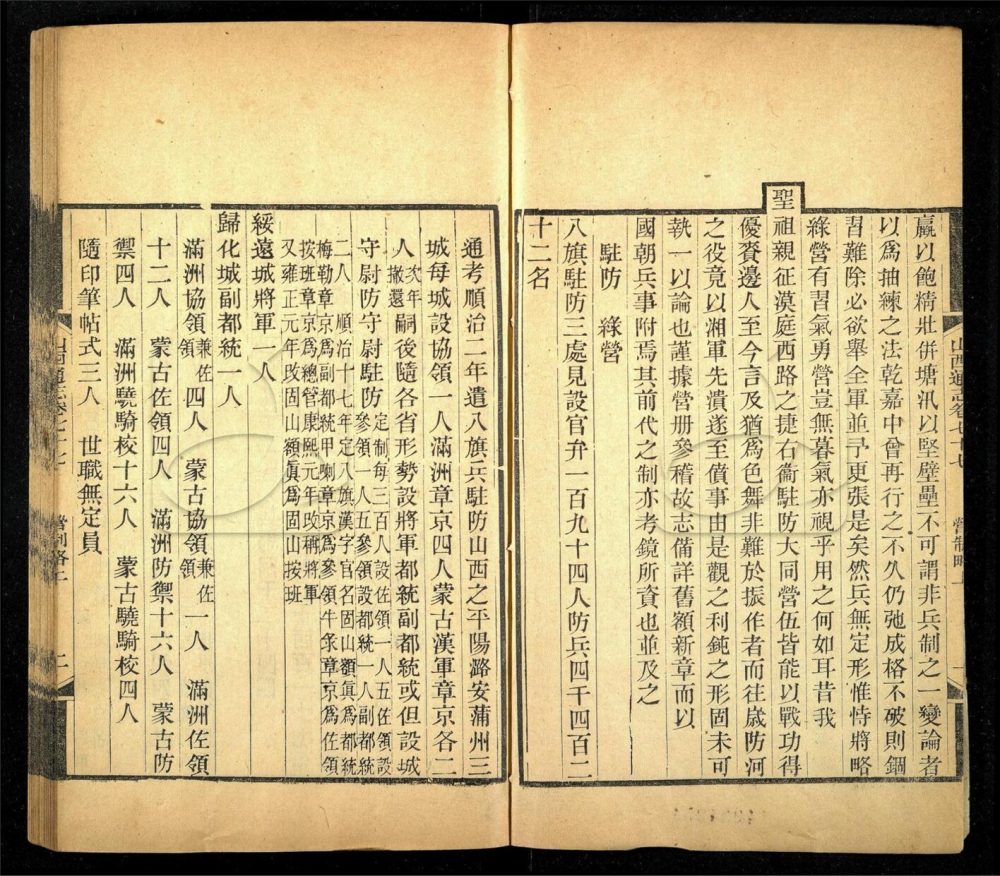 羸以飽精壯併塘汛以堅壁壘不可謂非兵制之一變論者
以爲抽練之法乾嘉中曾再行之不久仍弛成格不破則錮
習難除必欲舉全軍並予更張是矣然兵無定形惟恃將略
綠營有習氣勇營豈無暮氣亦視乎用之何如耳昔我
聖祖親征漠庭西路之捷右衞駐防大同營伍皆能以戰功得
優賚邊人至今言及猶爲色舞非難於振作者而往歲防河
之役竟以湘軍先潰遂至僨事由是觀之利鈍之形固未可
執一以論也謹據營册參稽故志備詳舊額新章而以
國朝兵事附焉其前代之制亦考鏡所資也並及之
駐防 綠營
八旗駐防三處見設官弁一百九十四人防兵四千四百二
十二名
山西通志卷七十七 營制略上 一
通考順治二年遣八旗兵駐防山西之平陽潞安蒲州三
城每城設協領一人滿洲章京四人蒙古漢軍章京各二
人次年撤還嗣後隨各省形勢設將軍都統副都統或但設城
守尉防守尉駐防定制每三百人設佐領一人五佐領設參領一人五參領設都統一人副都統
二人順治十七年定八旗漢字官名固山額眞爲都統梅勒章京爲副都統甲喇章京爲參領牛彔章京爲佐領
按班章京爲總管康熙元年改稱將軍又雍正元年改固山額眞爲固山按班
綏遠城將軍一人
歸化城副都統一人
滿洲協領兼佐領四人 蒙古協領兼佐領一人 滿洲佐領
十二人 蒙古佐領四人 滿洲防禦十六人 蒙古防
禦四人 滿洲驍騎校十六人 蒙古驍騎校四人
隨印筆帖式三人 世職無定員
山西通志卷七十七 營制略上 二